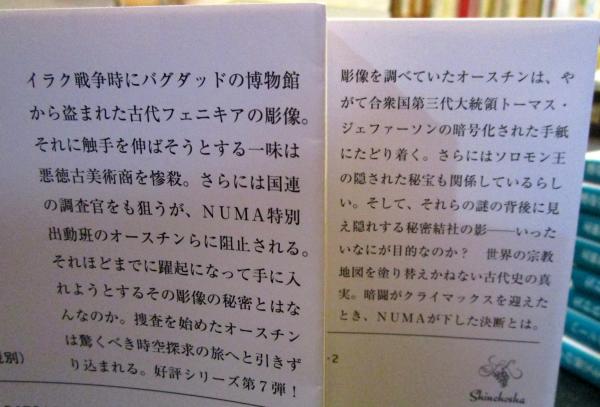 イラク戦争時にバグダッドの博物館
から盗まれた古代フェニキアの彫像。
それに触手を伸ばそうとする一味は
悪徳古美術商を惨殺。さらには国連
の調査官をも狙うが、NUMA特別
出動班のオースチンらに阻止される。
それほどまでに躍起になって手に入
れようとするその彫像の秘密とはな
んなのか。捜査を始めたオースチン
は驚くべき時空探求の旅へと引きず
り込まれる。好評シリーズ第7弾!
別)
彫像を調べていたオースチンは、や
がて合衆国第三代大統領トーマス・
ジェファーソンの暗号化された手紙
にたどり着く。さらにはソロモン王
の隠された秘宝も関係しているらし
い。そして、それらの謎の背後に見
え隠れする秘密結社の影――いった
いなにが目的なのか? 世界の宗教
地図を塗り替えかねない古代史の真
実。暗闘がクライマックスを迎えた
とき、NUMAが下した決断とは。
・2
Shinchosha